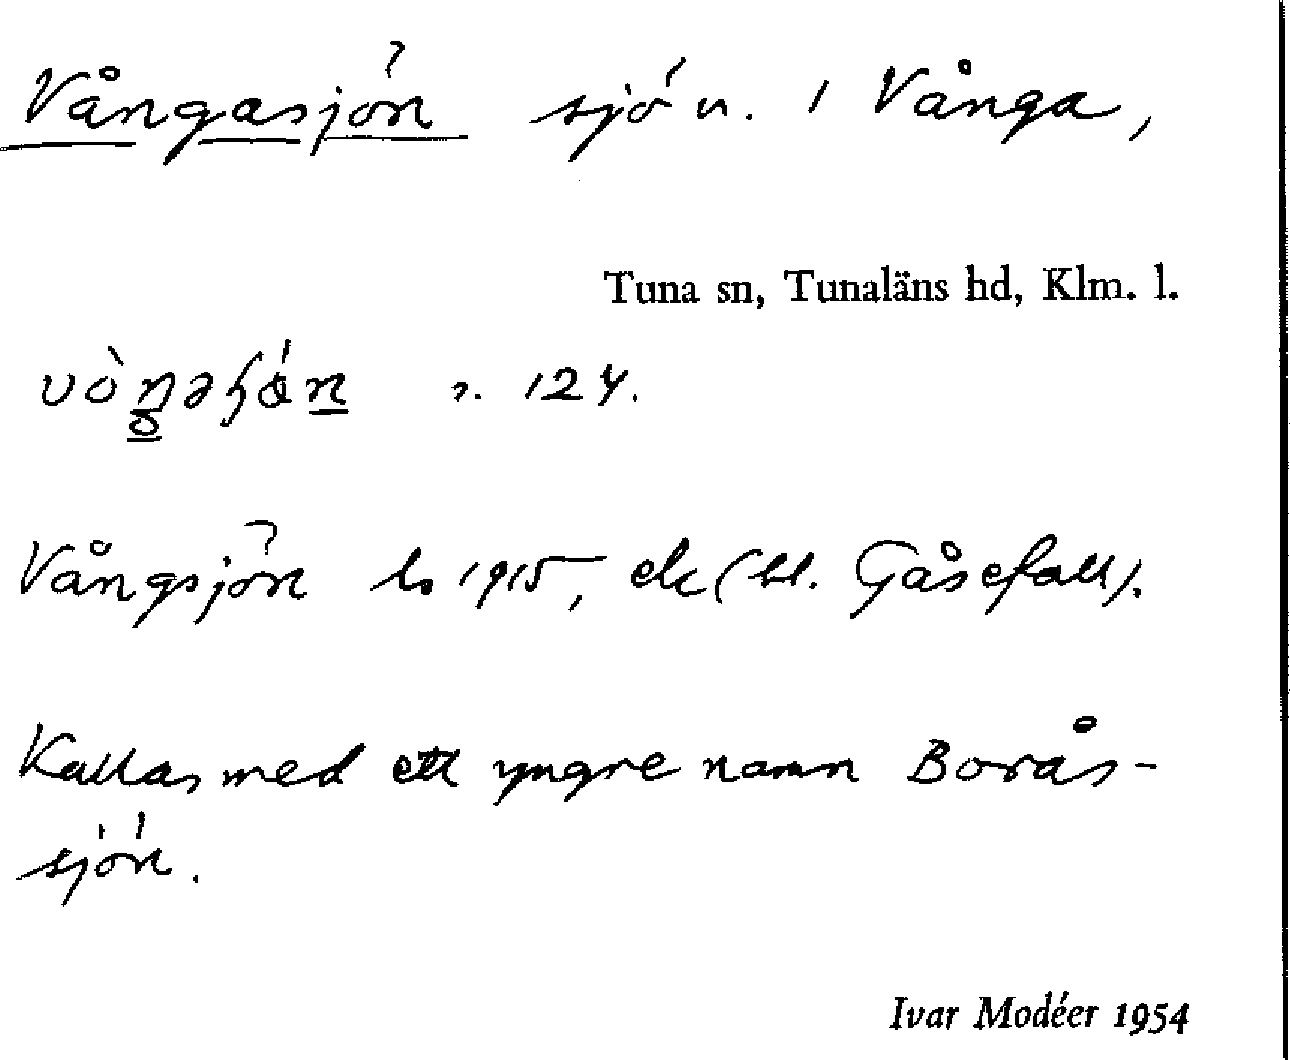 Vångasjön sjö n. i Vånga,
Tuna sn, Tunaläns hd, Klm. l.
124.
Vångsjön ls 1915, ek (bl. Gåsefall).
Kallas med ett yngre namn Borås-
sjön.
Ivar Modéer 1954